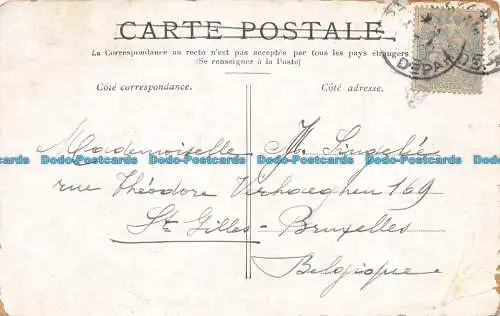 CARTE POSTALE
La Correspondance au recto n'est pas acceptée par tous les pays étrangers
(Se renseigner à la Poste)
Côté correspondance.
Côté adresse.
DEPART
POSTES
Mademoiselle M. Singelée
rue Théodore Verhaeghen 169
St Gilles - Bruxelles
Belgique
Dodo-Postcards Dodo-Postcards Dodo-Postcards
Dodo-Postcards Dodo-Postcards Dodo-Postcards